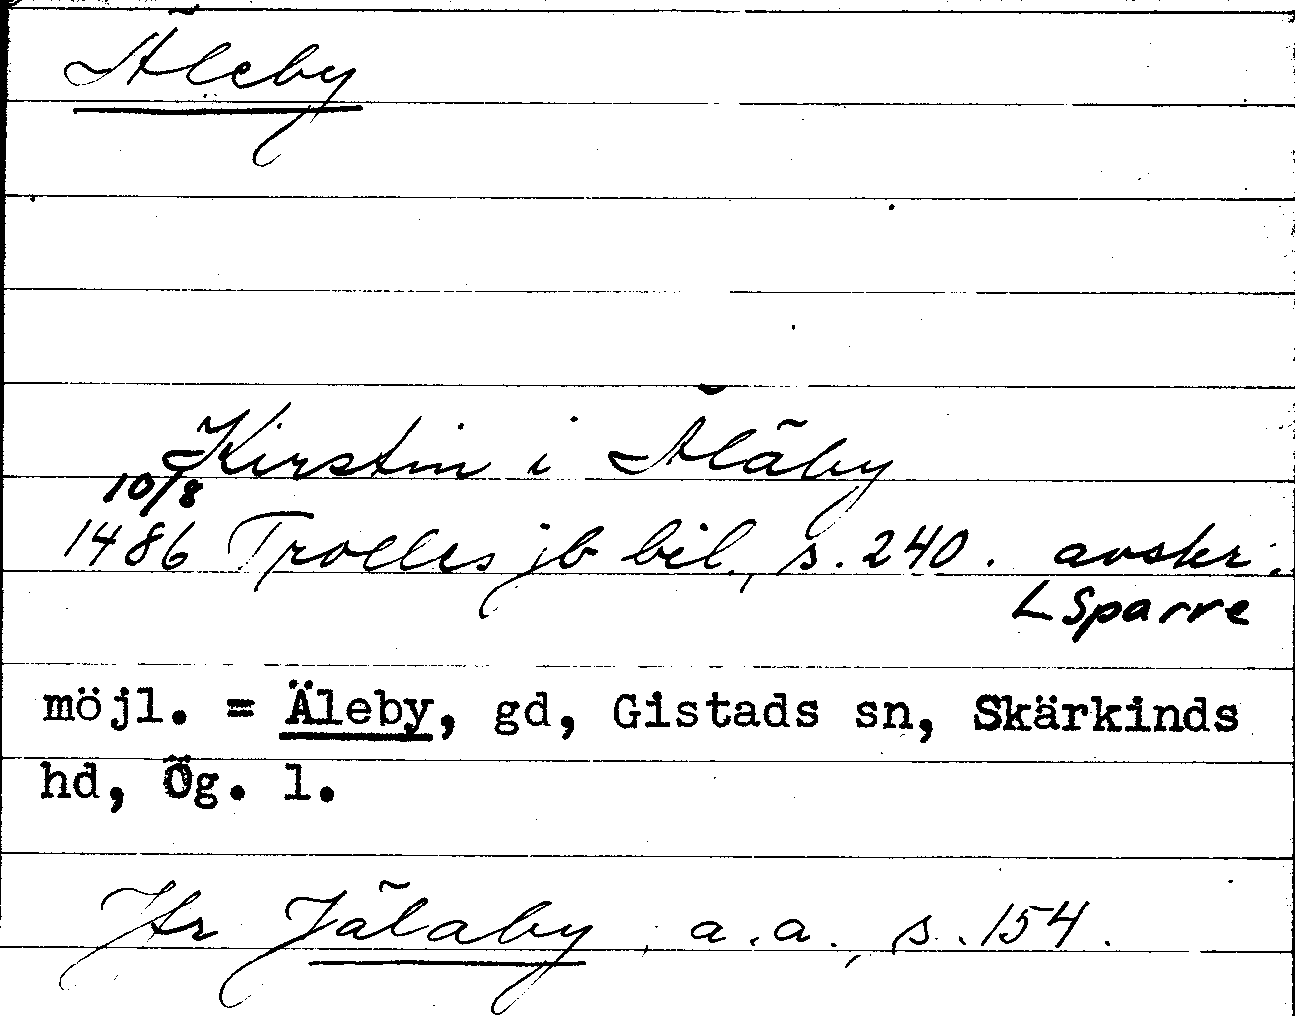 Äleby
Kirstin i Äläby
10/8
1486 Trolles jb bil., s. 240. avskr.
L Sparre
möjl. = Äleby, gd, Gistads sn, Skärkinds
hd, Ög. l.
Jfr Jälaby, a.a., s. 154.